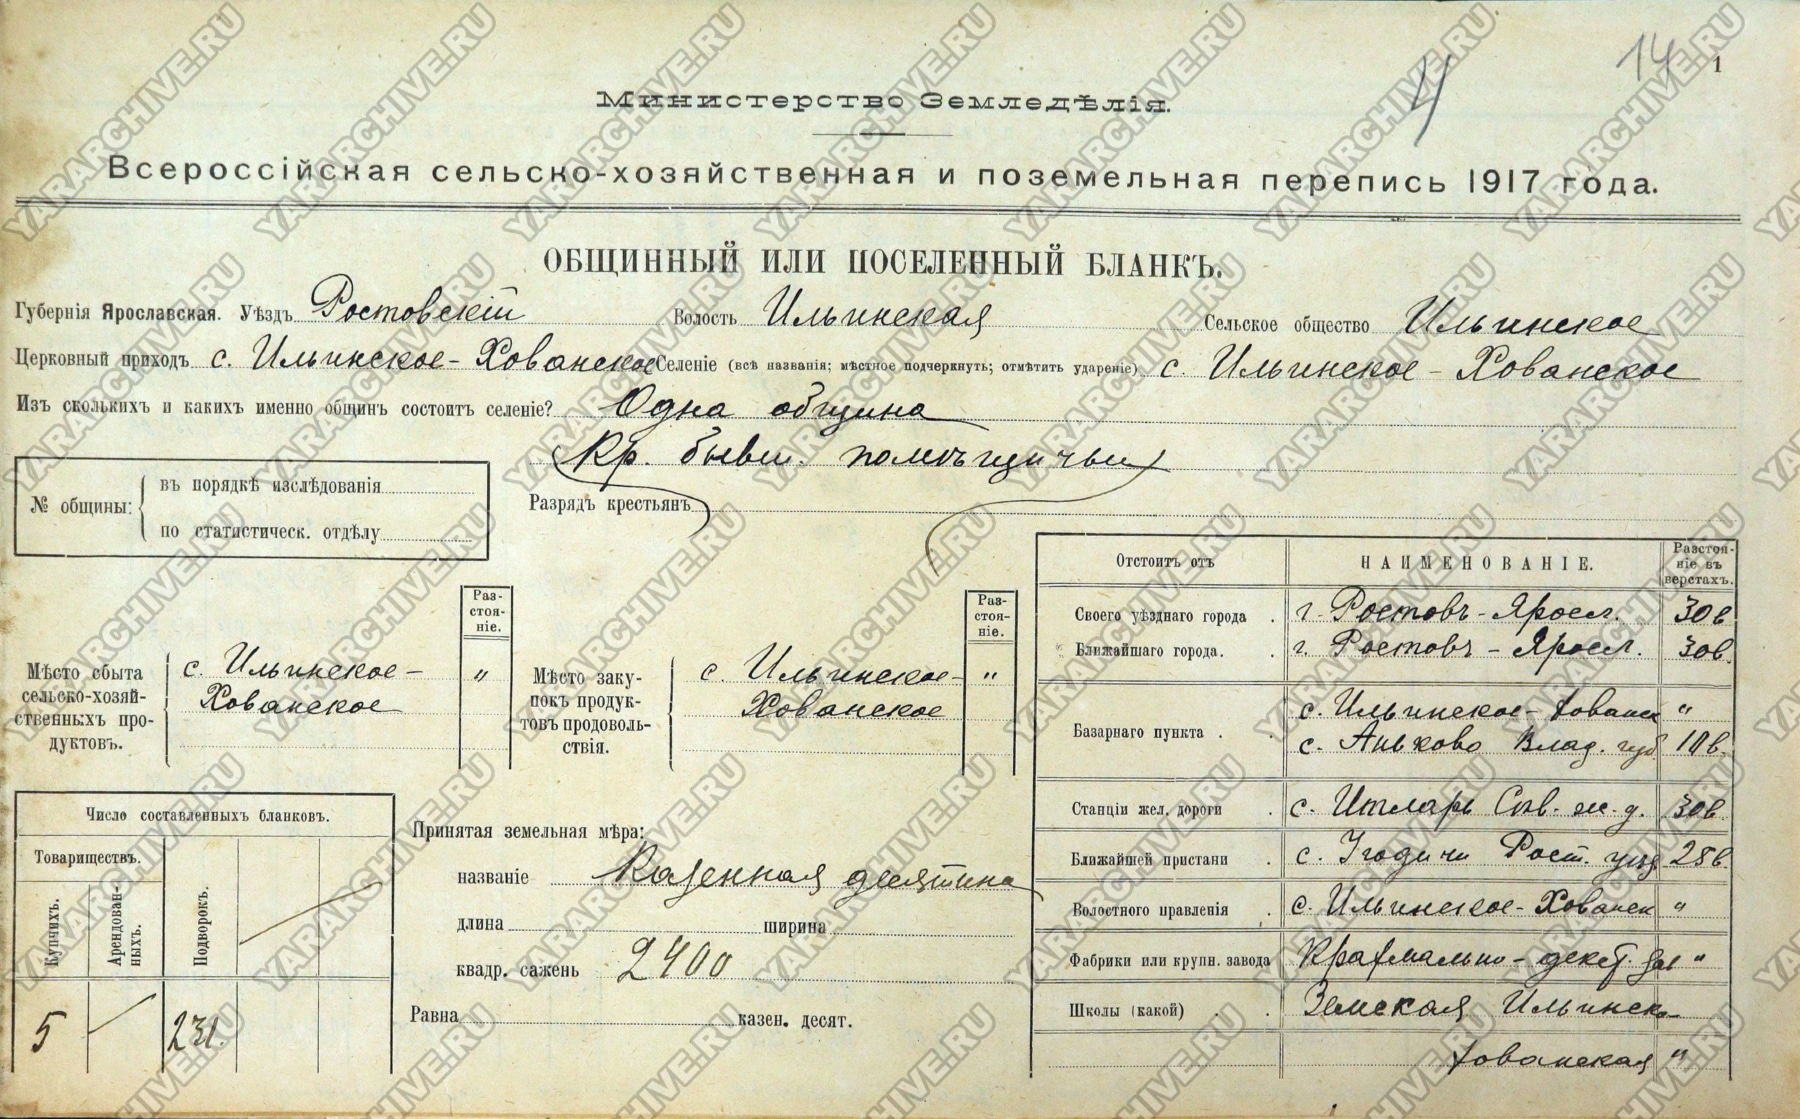 14 1
4
Министерство Земледѣлія.
Всероссійская сельско-хозяйственная и поземельная перепись 1917 года.
ОБЩИННЫЙ ИЛИ ПОСЕЛЕННЫЙ БЛАНКЪ.
Губернія Ярославская. Уѣздъ Ростовскій Волость Ильинская Сельское общество Ильинское
Церковный приходъ с. Ильинское-Хованское Селеніе (всѣ названія; мѣстное подчеркнуть; отмѣтить удареніе) с. Ильинское - Хованское
Изъ сколькихъ и какихъ именно общинъ состоитъ селеніе? Одна община
Кр. бывш. помѣщичьи
№ общины: въ порядкѣ изслѣдованія
по статистическ. отдѣлу
Разрядъ крестьянъ
Мѣсто сбыта сельско-хозяй-
ственныхъ про-
дуктовъ.
с. Ильинское-
Хованское
Раз-
стоя-
ніе.
"
Мѣсто заку-
покъ продук-
товъ продоволь-
ствія.
с. Ильинское-
Хованское
Раз-
стоя-
ніе.
"
Отстоитъ отъ НАИМЕНОВАНІЕ. Разстоя-
ніе въ
верстахъ.
Своего уѣзднаго города . г. Ростовъ-Яросл. 30в
Ближайшаго города. . г. Ростовъ - Яросл. 30в.
Базарнаго пункта . . с. Ильинское-Хованск "
с. Аньково Влад. губ. 10в.
Станціи жел. дороги . с. Итларь Сѣв. ж. д. 30в.
Ближайшей пристани . с. Угодичи Рост. уѣзд. 25в.
Волостного правленія . с. Ильинское-Хованск "
Фабрики или крупн. завода Крахмально-декст. зав "
Школы (какой) . . Земская Ильинско-
Хованская "
Число составленныхъ бланковъ.
Товариществъ.
Купчихъ.
Арендован-
ныхъ.
Подворок.
5 231.
Принятая земельная мѣра:
названіе Казенная десятина
длина ширина
квадр. сажень 2400
Равна казен. десят.
YARARCHIVE.RU